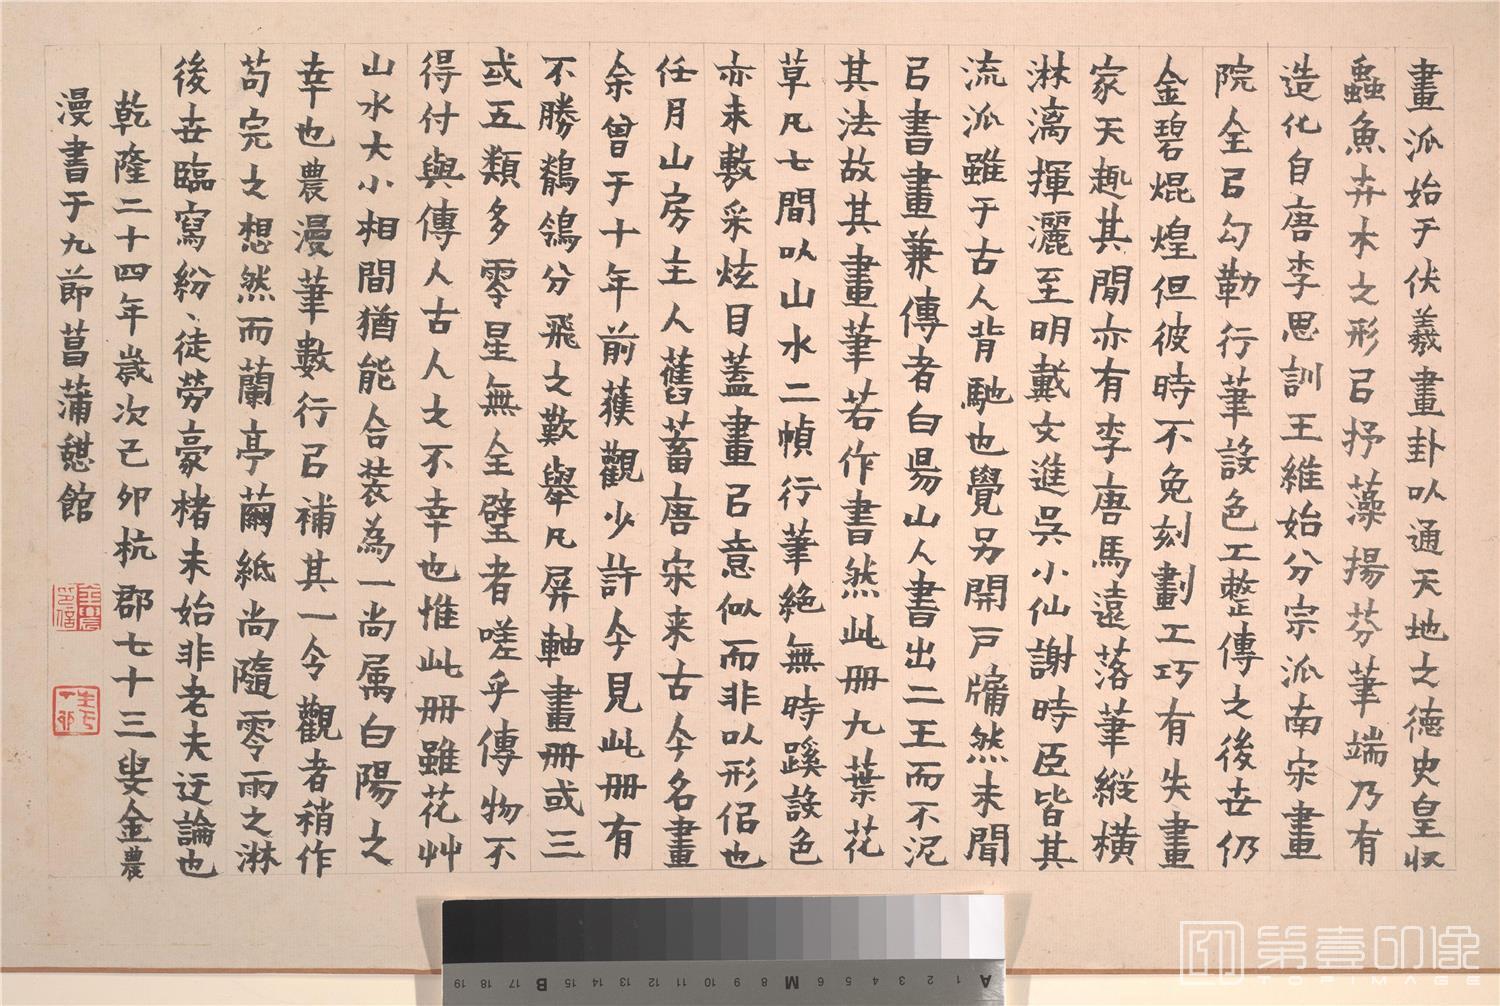 畫派始于伏羲畫卦以通天地之德史皇收
蟲魚卉木之形㠯抒藻揚芬筆端乃有
造化自唐李思訓王維始分宗派南宋畫
院全㠯勾勒行筆設色工整傳之後世仍
金碧焜煌但彼時不免刻劃工巧有失畫
家天趣其閒亦有李唐馬遠落筆縱橫
淋漓揮灑至明戴文進吳小仙謝時臣皆其
流派雖于古人背馳也覺另開戶牖然未聞
㠯書畫兼傳者白昜山人書出二王而不泥
其法故其畫筆若作書然此冊九葉花
草凡七間以山水二幀行筆絕無時蹊設色
亦未敷采炫目蓋畫㠯意似而非以形侶也
任月山房主人舊蓄唐宋来古今名畫
余曾于十年前獲觀少許今見此冊有
不勝鶺鴒分飛之歎舉凡屏軸畫冊或三
或五類多零星無全璧者嗟乎傳物不
得付與傳人古人之不幸也惟此冊雖花艸
山水大小相間猶能合裝為一尚属白陽之
幸也農漫筆數行㠯補其一今觀者稍作
苟完之想然而蘭亭繭紙尚隨零雨之淋
後世臨寫紛、徒勞豪楮未始非老夫迂論也
乾隆二十四年歲次己卯杭郡七十三叟金農
漫書于九節菖蒲憇館
金農印信
生於丁卯
第壹印像
TOPIMAGE
A 1 2 3 4 5 6 7 M 8 9 10 11 12 13 14 15 B 16 17 18 19